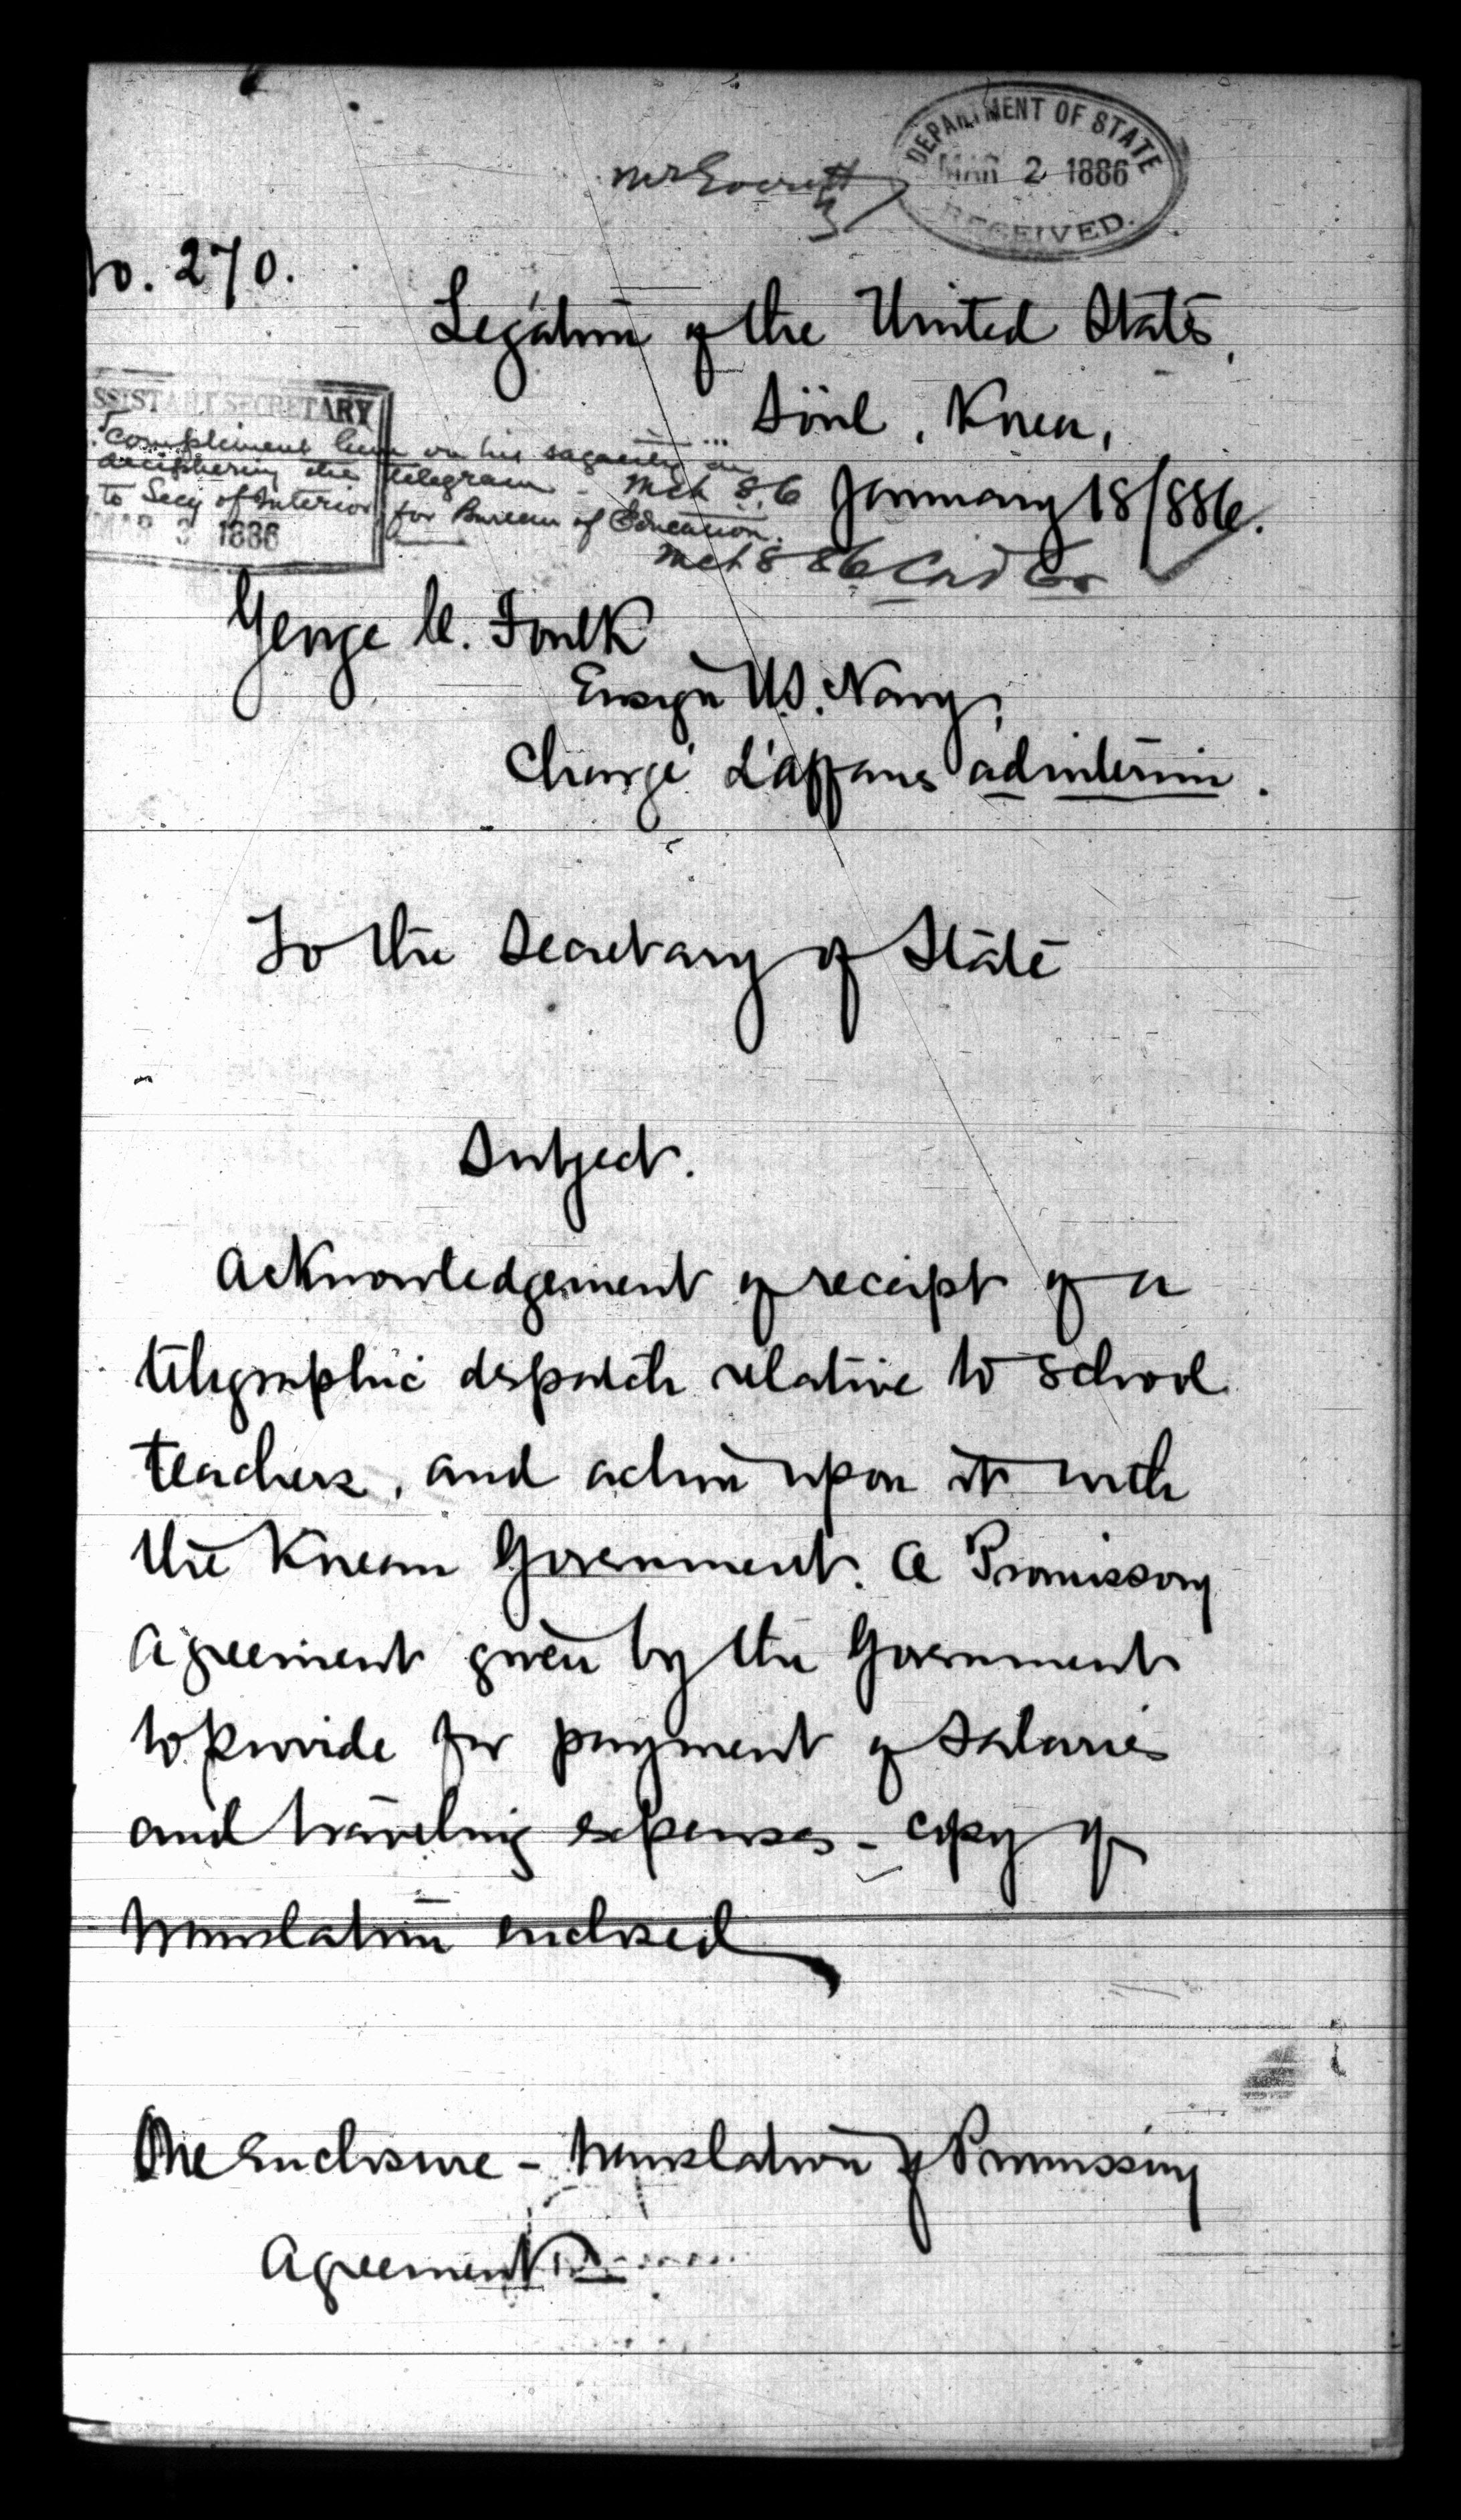 DEPARTMENT OF STATE
MAR 2 1886
RECEIVED.
Mr Everett
No. 270.
Legation of the United States,
Söul, Korea,
January 18/886.
ASSISTANT SECRETARY
Compliment him on his sagacity in
deciphering the telegram - Mch 8. 86
to Secy of Interior for Bureau of Education.
MAR 3 1886
Mch 8 86
George C. Foulk
Ensign U.S. Navy,
Chargé d'affaires ad interim.
To the Secretary of State
Subject.
Acknowledgement of receipt of a
telegraphic despatch relative to school
teachers, and action upon it with
the Korean Government. A Promissory
Agreement given by the Government
to provide for payment of salaries
and traveling expenses - copy of
translation enclosed
One Enclosure - translation of Promissory
Agreement